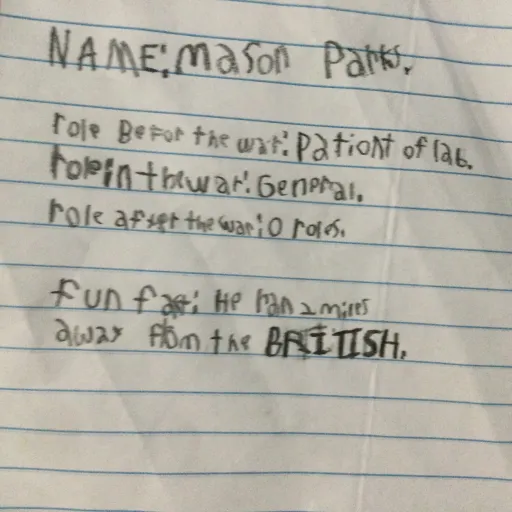 NAME: Mason Parks.
role Befor the war: Pationt of lab.
role in the war: General.
role after the war: 0 roles.
Fun fact: He ran 2 miles
away from the BRITISH.